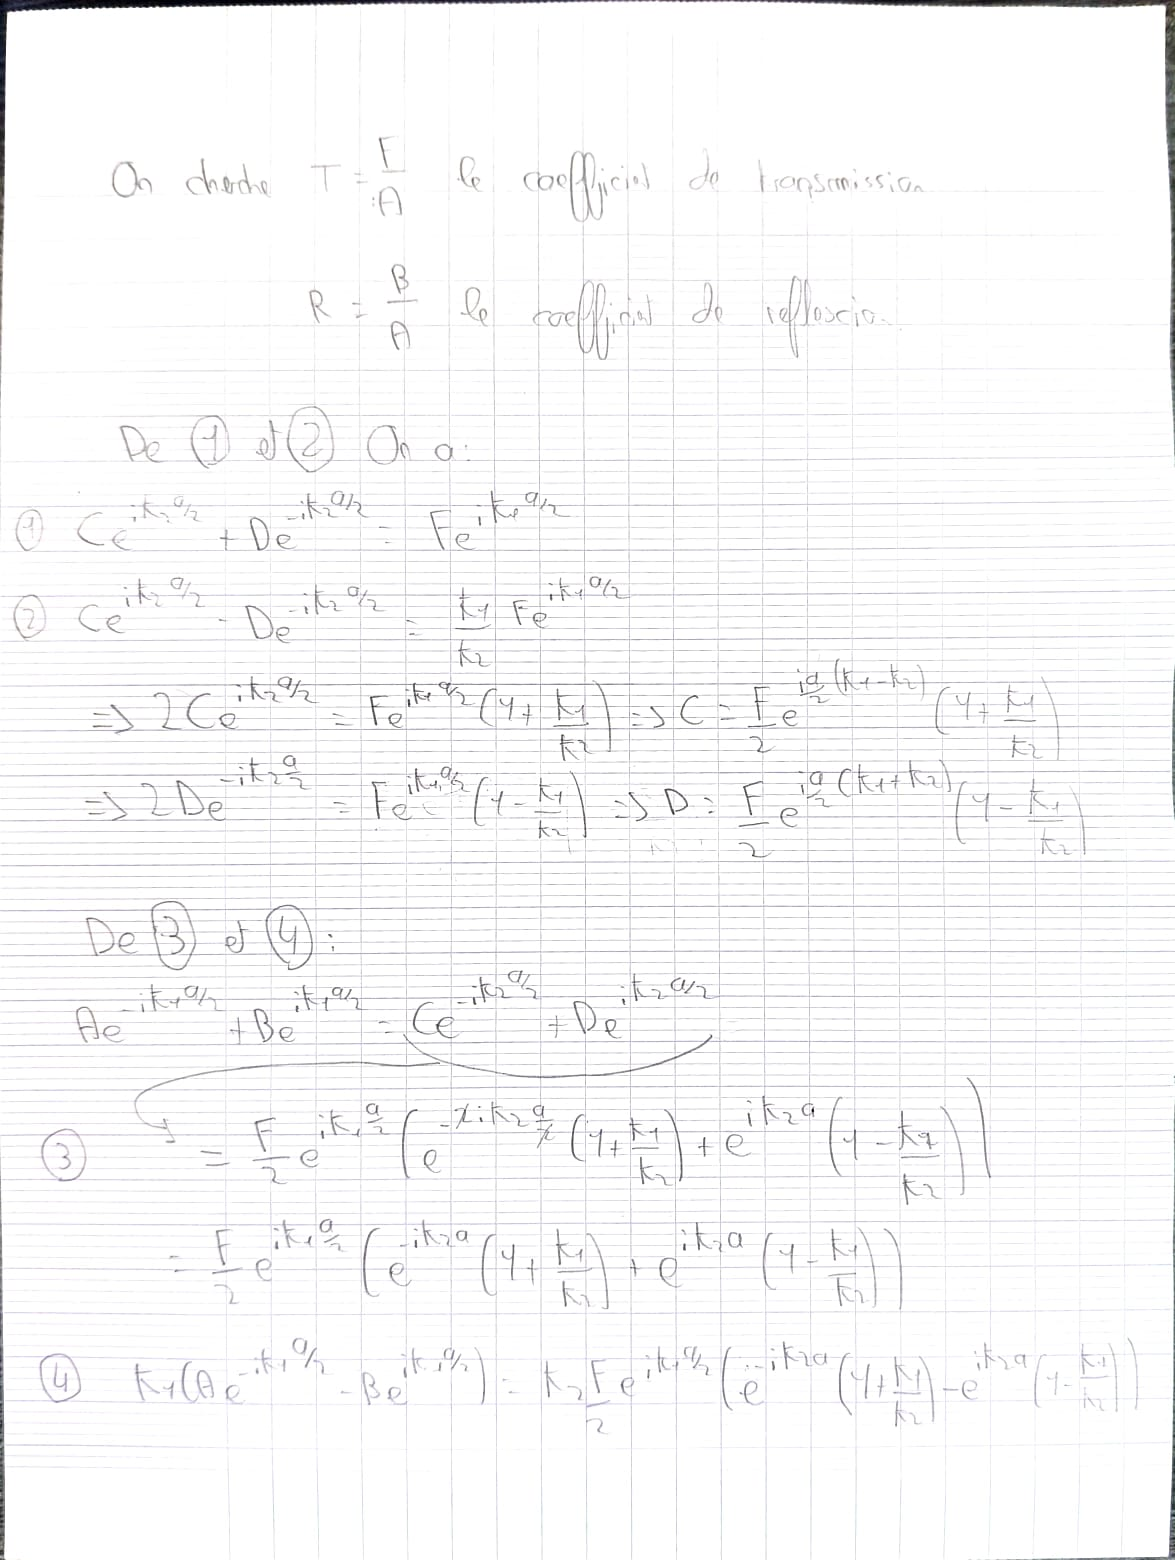 On cherche T = F/A le coefficient de transmission
R = B/A le coefficient de reflexion
De ① et ② On a:
① Ce^{ik₂a/2} + De^{-ik₂a/2} = Fe^{ik₁a/2}
② Ce^{ik₂a/2} - De^{-ik₂a/2} = k₁/k₂ Fe^{ik₁a/2}
=> 2Ce^{ik₂a/2} = Fe^{ik₁a/2} (1 + k₁/k₂) => C = F/2 e^{i a/2 (k₁-k₂)} (1 + k₁/k₂)
=> 2De^{-ik₂ a/2} = Fe^{ik₁a/2} (1 - k₁/k₂) => D = F/2 e^{i a/2 (k₁+k₂)} (1 - k₁/k₂)
De ③ et ④ :
Ae^{-ik₁a/2} + Be^{ik₁a/2} = Ce^{-ik₂a/2} + De^{ik₂a/2}
③ = F/2 e^{ik₁ a/2} (e^{-2ik₂ a/2} (1 + k₁/k₂) + e^{ik₂a} (1 - k₁/k₂))
= F/2 e^{ik₁ a/2} (e^{-ik₂a} (1 + k₁/k₂) + e^{ik₂a} (1 - k₁/k₂))
④ k₁(Ae^{-ik₁a/2} - Be^{ik₁a/2}) = k₂ F/2 e^{ik₁a/2} (e^{-ik₂a} (1 + k₁/k₂) - e^{ik₂a} (1 - k₁/k₂))